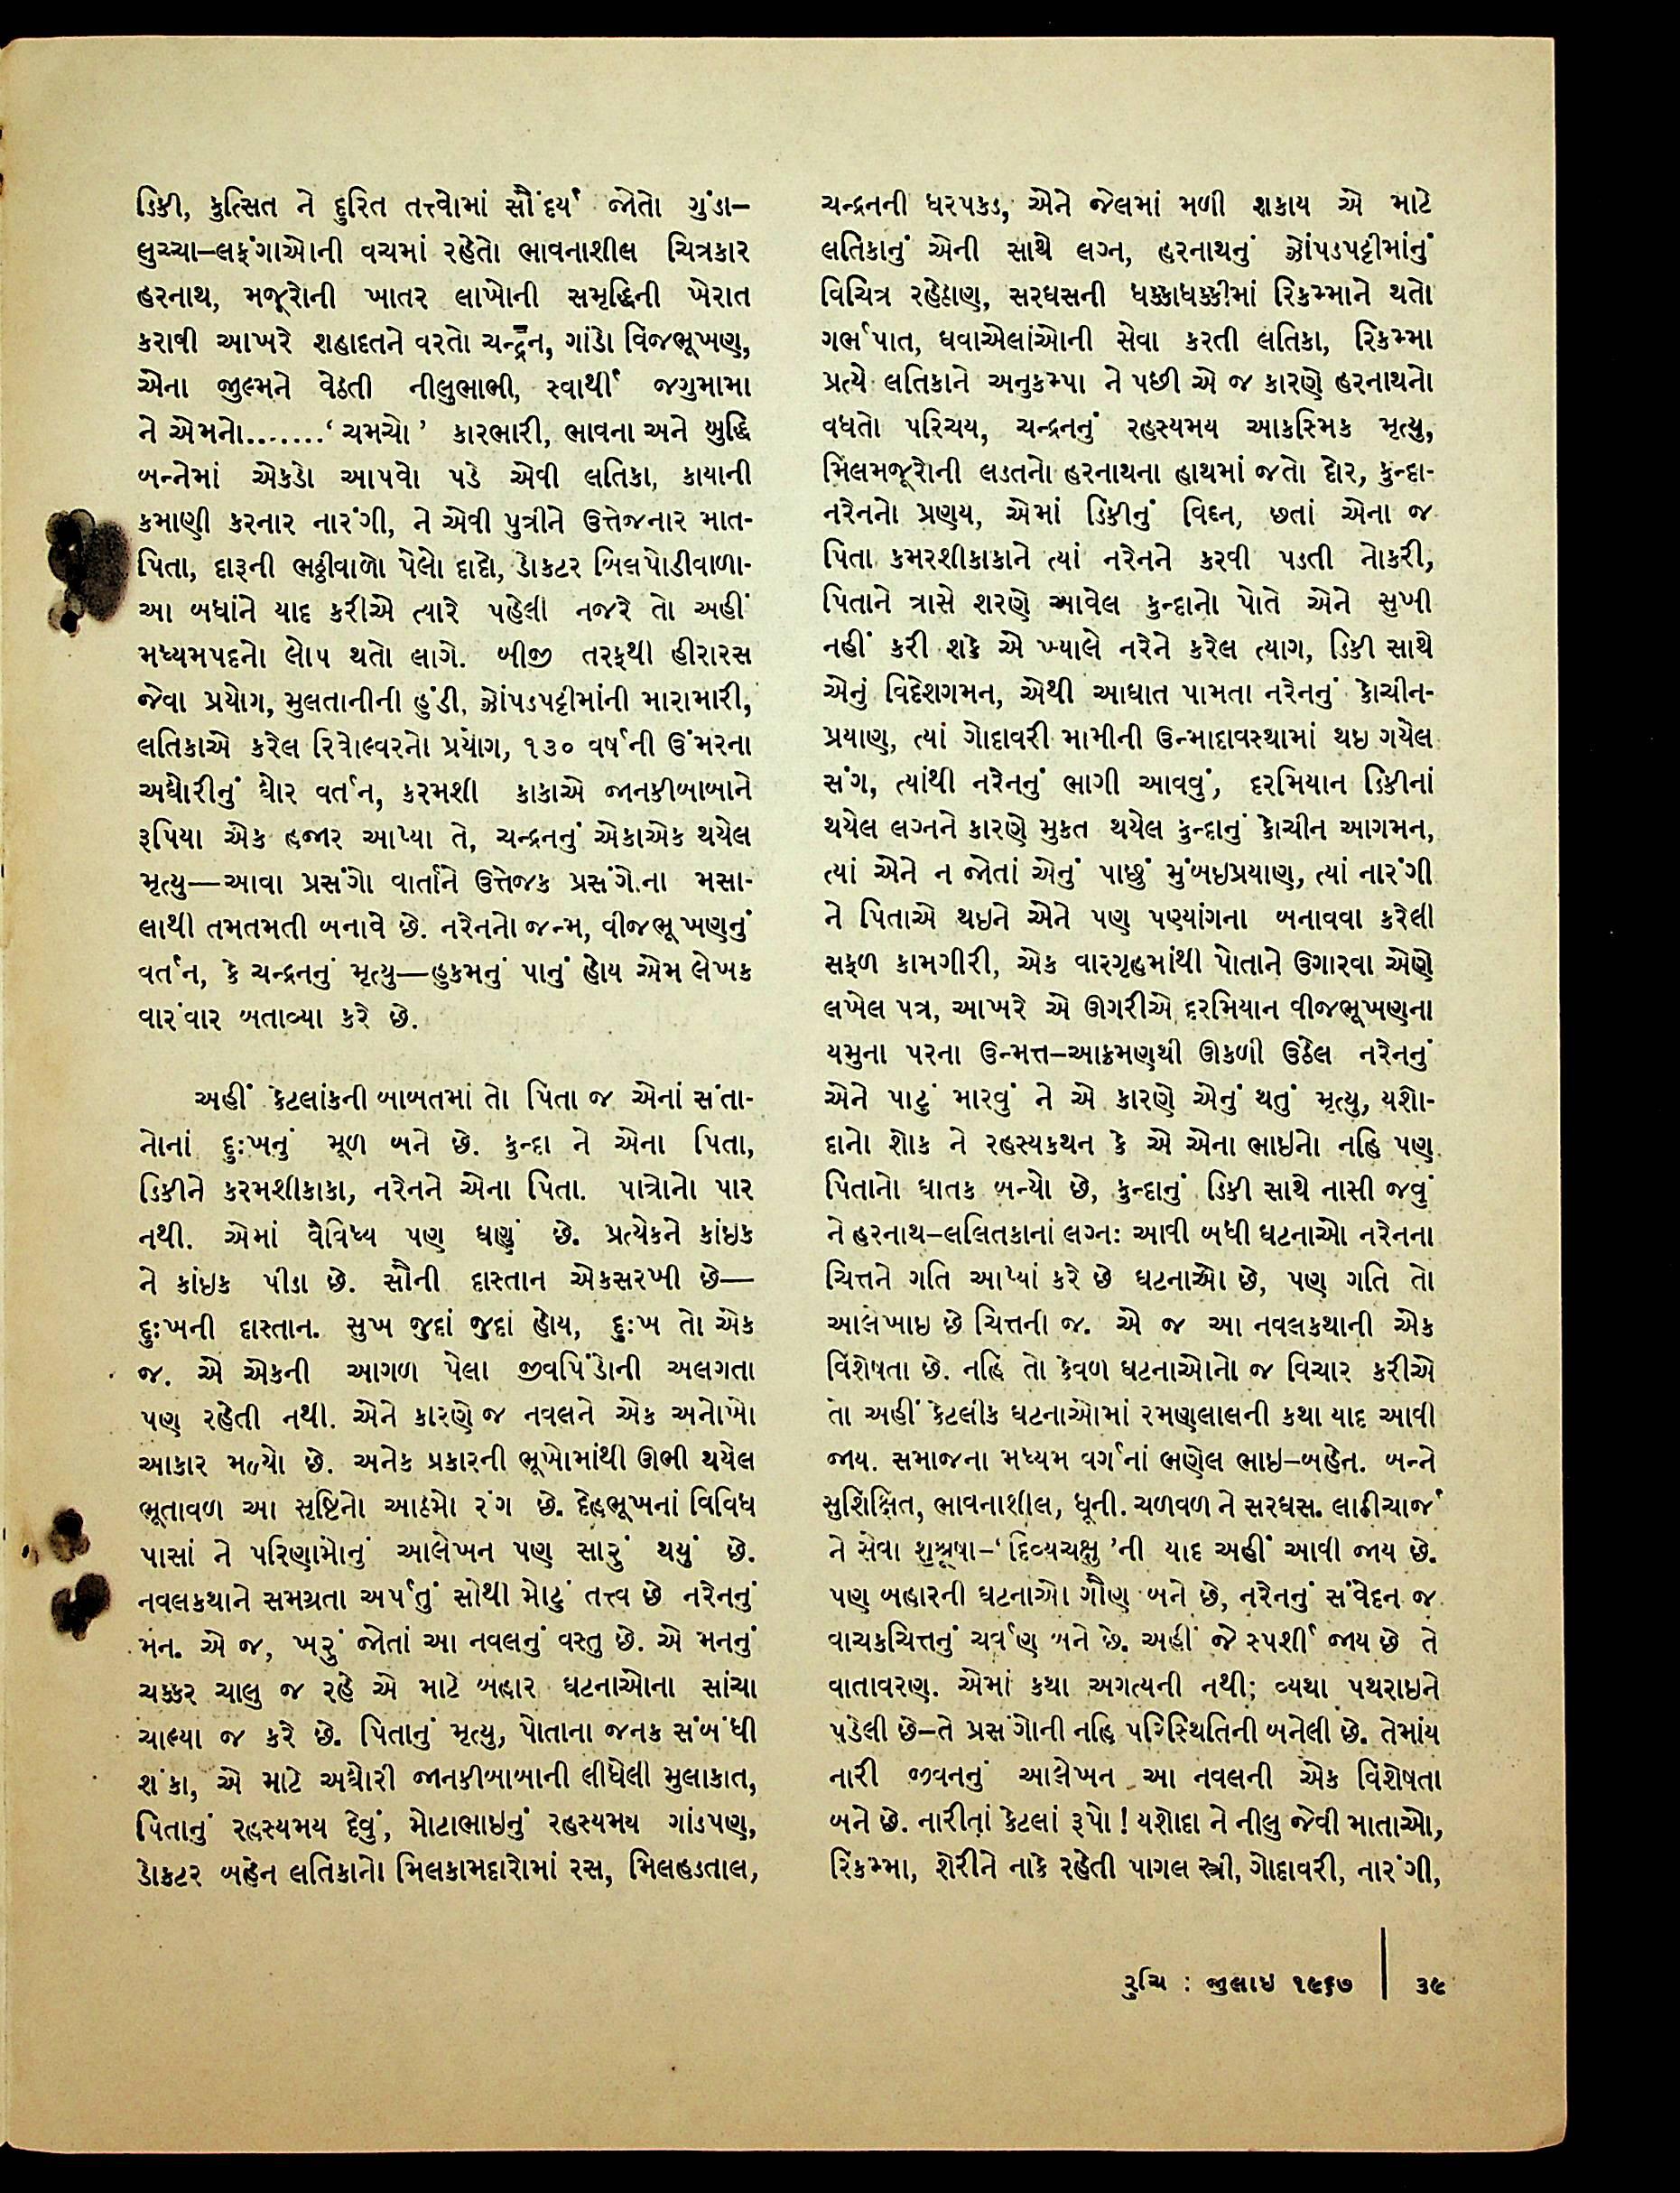 ડિકી, કુત્સિત ને દુરિત તત્ત્વોમાં સૌંદર્ય જોતો ગુંડા–
લુચ્ચા–લફંગાઓની વચમાં રહેતો ભાવનાશીલ ચિત્રકાર
હરનાથ, મજૂરોની ખાતર લાખોની સમૃદ્ધિની ખેરાત
કરાવી આખરે શહાદતને વરતો ચન્દ્રન, ગાંડો વિજભૂખણ,
એના જુલ્મને વેઠતી નીલુભાભી, સ્વાર્થી જગુમામા
ને એમનો.......‘ચમચો’ કારભારી, ભાવના અને બુદ્ધિ
બન્નેમાં એકડો આપવો પડે એવી લતિકા, કાયાની
કમાણી કરનાર નારંગી, ને એવી પુત્રીને ઉત્તેજનાર માત-
પિતા, દારૂની ભઠ્ઠીવાળો પેલો દાદો, ડોકટર બિલપોડીવાળા-
આ બધાંને યાદ કરીએ ત્યારે પહેલી નજરે તો અહીં
મધ્યમપદનો લોપ થતો લાગે. બીજી તરફથી હીરારસ
જેવા પ્રયોગ, મુલતાનીની હુંડી, ઝોંપડપટ્ટીમાંની મારામારી,
લતિકાએ કરેલ રિવોલ્વરનો પ્રયોગ, ૧૩૦ વર્ષની ઉંમરના
અઘોરીનું ઘોર વર્તન, કરમશી કાકાએ જાનકીબાબાને
રૂપિયા એક હજાર આપ્યા તે, ચન્દ્રનનું એકાએક થયેલ
મૃત્યુ—આવા પ્રસંગો વાર્તાને ઉત્તેજક પ્રસંગોના મસા-
લાથી તમતમતી બનાવે છે. નરેનનો જન્મ, વીજભૂખણનું
વર્તન, કે ચન્દ્રનનું મૃત્યુ—હુકમનું પાનું હોય એમ લેખક
વારંવાર બતાવ્યા કરે છે.
અહીં કેટલાંકની બાબતમાં તો પિતા જ એનાં સંતા-
નોનાં દુઃખનું મૂળ બને છે. કુન્દા ને એના પિતા,
ડિકીને કરમશીકાકા, નરેનને એના પિતા. પાત્રોનો પાર
નથી. એમાં વૈવિધ્ય પણ ઘણું છે. પ્રત્યેકને કાંઇક
ને કાંઇક પીડા છે. સૌની દાસ્તાન એકસરખી છે—
દુઃખની દાસ્તાન. સુખ જુદાં જુદાં હોય, દુઃખ તો એક
જ. એ એકની આગળ પેલા જીવપિંડોની અલગતા
પણ રહેતી નથી. એને કારણે જ નવલને એક અનોખો
આકાર મળ્યો છે. અનેક પ્રકારની ભૂખોમાંથી ઊભી થયેલ
ભૂતાવળ આ સૃષ્ટિનો આઠમો રંગ છે. દેહભૂખનાં વિવિધ
પાસાં ને પરિણામોનું આલેખન પણ સારું થયું છે.
નવલકથાને સમગ્રતા અર્પતું સૌથી મોટું તત્ત્વ છે નરેનનું
મન. એ જ, ખરું જોતાં આ નવલનું વસ્તુ છે. એ મનનું
ચક્કર ચાલુ જ રહે એ માટે બહાર ઘટનાઓના સાંચા
ચાલ્યા જ કરે છે. પિતાનું મૃત્યુ, પોતાના જનક સંબંધી
શંકા, એ માટે અઘોરી જાનકીબાબાની લીધેલી મુલાકાત,
પિતાનું રહસ્યમય દેવું, મોટાભાઇનું રહસ્યમય ગાંડપણ,
ડોકટર બહેન લતિકાનો મિલકામદારોમાં રસ, મિલહડતાલ,
ચન્દ્રનની ધરપકડ, એને જેલમાં મળી શકાય એ માટે
લતિકાનું એની સાથે લગ્ન, હરનાથનું ઝોંપડપટ્ટીમાંનું
વિચિત્ર રહેઠાણ, સરઘસની ધક્કાધક્કીમાં રિકમ્માને થતો
ગર્ભપાત, ઘવાએલાંઓની સેવા કરતી લતિકા, રિકમ્મા
પ્રત્યે લતિકાને અનુકમ્પા ને પછી એ જ કારણે હરનાથનો
વધતો પરિચય, ચન્દ્રનનું રહસ્યમય આકસ્મિક મૃત્યુ,
મિલમજૂરોની લડતનો હરનાથના હાથમાં જતો દોર, કુન્દા-
નરેનનો પ્રણય, એમાં ડિકીનું વિઘ્ન, છતાં એના જ
પિતા કમરશીકાકાને ત્યાં નરેનને કરવી પડતી નોકરી,
પિતાને ત્રાસે શરણે આવેલ કુન્દાનો પોતે એને સુખી
નહીં કરી શકે એ ખ્યાલે નરેને કરેલ ત્યાગ, ડિકી સાથે
એનું વિદેશગમન, એથી આઘાત પામતા નરેનનું કોચીન-
પ્રયાણ, ત્યાં ગોદાવરી મામીની ઉન્માદાવસ્થામાં થઇ ગયેલ
સંગ, ત્યાંથી નરેનનું ભાગી આવવું, દરમિયાન ડિકીનાં
થયેલ લગ્નને કારણે મુકત થયેલ કુન્દાનું કોચીન આગમન,
ત્યાં એને ન જોતાં એનું પાછું મુંબઇપ્રયાણ, ત્યાં નારંગી
ને પિતાએ થઇને એને પણ પણ્યાંગના બનાવવા કરેલી
સફળ કામગીરી, એક વારગૃહમાંથી પોતાને ઉગારવા એણે
લખેલ પત્ર, આખરે એ ઊગરીએ દરમિયાન વીજભૂખણના
યમુના પરના ઉન્મત્ત–આક્રમણથી ઊકળી ઉઠેલ નરેનનું
એને પાટું મારવું ને એ કારણે એનું થતું મૃત્યુ, યશો-
દાનો શોક ને રહસ્યકથન કે એ એના ભાઇનો નહિ પણ
પિતાનો ઘાતક બન્યો છે, કુન્દાનું ડિકી સાથે નાસી જવું
ને હરનાથ–લલિતકાનાં લગ્ન: આવી બધી ઘટનાઓ નરેનના
ચિત્તને ગતિ આપ્યાં કરે છે ઘટનાઓ છે, પણ ગતિ તો
આલેખાઇ છે ચિત્તની જ. એ જ આ નવલકથાની એક
વિશેષતા છે. નહિ તો કેવળ ઘટનાઓનો જ વિચાર કરીએ
તો અહીં કેટલીક ઘટનાઓમાં રમણલાલની કથા યાદ આવી
જાય. સમાજના મધ્યમ વર્ગનાં ભણેલ ભાઇ–બહેન. બન્ને
સુશિક્ષિત, ભાવનાશીલ, ધૂની. ચળવળ ને સરઘસ. લાઠીચાર્જ
ને સેવા શુશ્રૂષા–‘દિવ્યચક્ષુ’ની યાદ અહીં આવી જાય છે.
પણ બહારની ઘટનાઓ ગૌણ બને છે, નરેનનું સંવેદન જ
વાચકચિત્તનું ચર્વણ બને છે. અહીં જે સ્પર્શી જાય છે તે
વાતાવરણ. એમાં કથા અગત્યની નથી; વ્યથા પથરાઇને
પડેલી છે–તે પ્રસંગોની નહિ પરિસ્થિતિની બનેલી છે. તેમાંય
નારી જીવનનું આલેખન આ નવલની એક વિશેષતા
બને છે. નારીનાં કેટલાં રૂપો ! યશોદા ને નીલુ જેવી માતાઓ,
રિકમ્મા, શેરીને નાકે રહેતી પાગલ સ્ત્રી, ગોદાવરી, નારંગી,
રુચિ : જુલાઇ ૧૯૬૭ | ૩૯